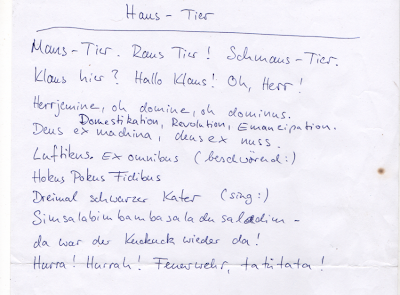 Haus - Tier
Maus - Tier. Raus Tier! Schmaus - Tier.
Klaus hier? Hallo Klaus! Oh, Herr!
Herrjemine, oh domine, oh dominus.
Domestikation, Revolution, Emancipation.
Deus ex machina, deus ex nuss.
Luftikus. Ex omnibus (beschwörend:)
Hokus Pokus Fidibus
Dreimal schwarzer Kater (sing:)
Simsalabimbambasaladusaladim -
da war der Kuckuck wieder da!
Hurra! Hurrah! Feuerwehr, tatütata!